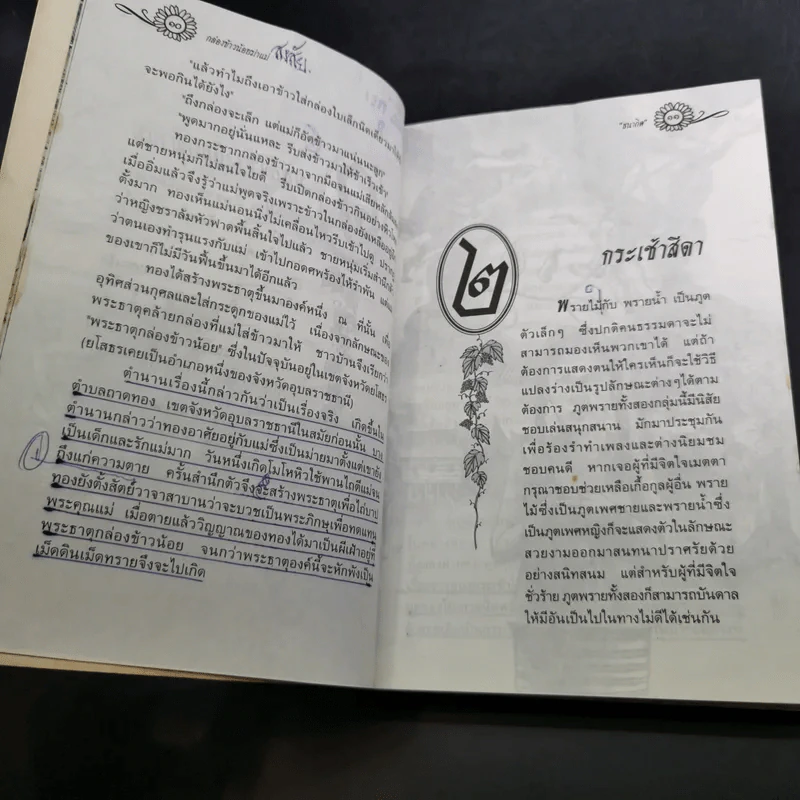 ๑๐
กล่องข้าวน้อยฆ่าแม่
สงสัย.
"แล้วทำไมถึงเอาข้าวใส่กล่องใบเล็กนิดเดียวมาให้
จะพอกินได้ยังไง"
"ถึงกล่องจะเล็ก แต่แม่ก็อัดข้าวมาแน่นนะลูก"
"พูดมากอยู่นั่นแหละ รีบส่งข้าวมาให้ข้าเร็วเข้า"
ทองกระชากกล่องข้าวมาจากมือจนแม่เสียหลักล้มลง
แต่ชายหนุ่มก็ไม่สนใจไยดี รีบเปิดกล่องข้าวกินอย่างหิวโหย
เมื่ออิ่มแล้วจึงรู้ว่าแม่พูดจริงเพราะข้าวในกล่องยังเหลืออยู่อีก
ตั้งมาก ทองเห็นแม่นอนนิ่งไม่เคลื่อนไหวรีบเข้าไปดู ปรากฏ
ว่าหญิงชราล้มหัวฟาดพื้นสิ้นใจไปแล้ว ชายหนุ่มเริ่มสำนึกตัว
ว่าตนเองทำรุนแรงกับแม่ เข้าไปกอดศพร้องไห้รำพัน แต่แม่
ของเขาก็ไม่มีวันฟื้นขึ้นมาได้อีกแล้ว
ทองได้สร้างพระธาตุขึ้นมาองค์หนึ่ง ณ ที่นั้น เพื่อ
อุทิศส่วนกุศลและใส่กระดูกของแม่ไว้ เนื่องจากลักษณะของ
พระธาตุคล้ายกล่องที่แม่ใส่ข้าวมาให้ ชาวบ้านจึงเรียกว่า
"พระธาตุกล่องข้าวน้อย" ซึ่งในปัจจุบันอยู่ในเขตจังหวัดยโสธร
(ยโสธรเคยเป็นอำเภอหนึ่งของจังหวัดอุบลราชธานี)
ตำนานเรื่องนี้กล่าวกันว่าเป็นเรื่องจริง เกิดขึ้นใน
ตำบลถาดทอง เขตจังหวัดอุบลราชธานีในสมัยก่อนนั้น บาง
ตำนานกล่าวว่าทองอาศัยอยู่กับแม่ซึ่งเป็นม่ายมาตั้งแต่เขายัง
เป็นเด็กและรักแม่มาก วันหนึ่งเกิดโมโหหิวใช้พานไถตีแม่จน
ถึงแก่ความตาย ครั้นสำนึกตัวจึงจะสร้างพระธาตุเพื่อไถ่บาป
ทองยังตั้งสัตย์วาจาสาบานว่าจะบวชเป็นพระภิกษุเพื่อทดแทน
พระคุณแม่ เมื่อตายแล้ววิญญาณของทองได้มาเป็นผีเฝ้าอยู่ที่
พระธาตุกล่องข้าวน้อย จนกว่าพระธาตุองค์นี้จะหักพังเป็น
เม็ดดินเม็ดทรายจึงจะไปเกิด
"ธนากิต"
๑๑
๒
กระเช้าสีดา
พรายไม้กับ พรายน้ำ เป็นภูต
ตัวเล็กๆ ซึ่งปกติคนธรรมดาจะไม่
สามารถมองเห็นพวกเขาได้ แต่ถ้า
ต้องการแสดงตนให้ใครเห็นก็จะใช้วิธี
แปลงร่างเป็นรูปลักษณะต่างๆได้ตาม
ต้องการ ภูตพรายทั้งสองกลุ่มนี้มีนิสัย
ชอบเล่นสนุกสนาน มักมาประชุมกัน
เพื่อร้องรำทำเพลงและต่างนิยมชม
ชอบคนดี หากเจอผู้ที่มีจิตใจเมตตา
กรุณาชอบช่วยเหลือเกื้อกูลผู้อื่น พราย
ไม้ซึ่งเป็นภูตเพศชายและพรายน้ำซึ่ง
เป็นภูตเพศหญิงก็จะแสดงตัวในลักษณะ
สวยงามออกมาสนทนาปราศรัยด้วย
อย่างสนิทสนม แต่สำหรับผู้ที่มีจิตใจ
ชั่วร้าย ภูตพรายทั้งสองก็สามารถบันดาล
ให้มีอันเป็นไปในทางไม่ดีได้เช่นกัน